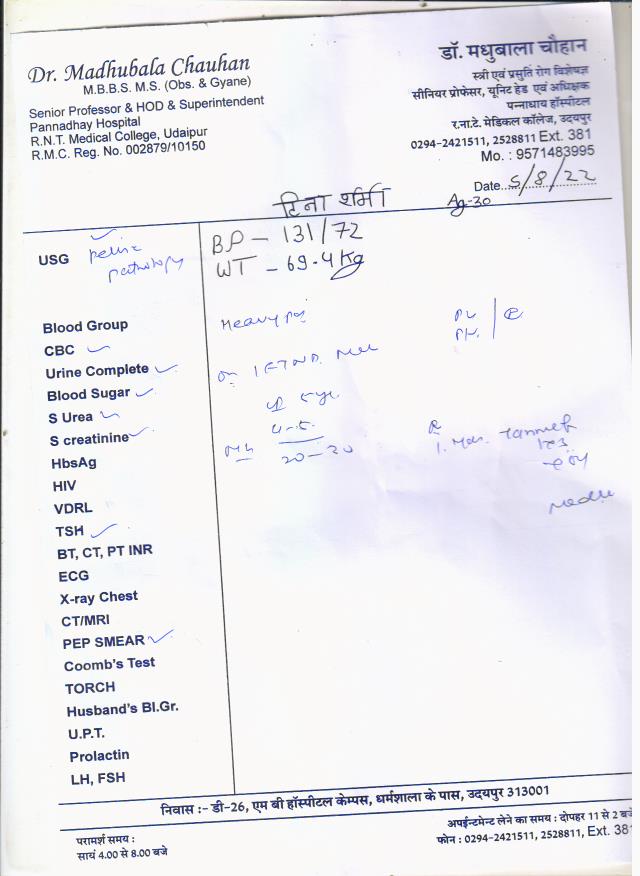 Dr. Madhubala Chauhan
M.B.B.S. M.S. (Obs. & Gyane)
Senior Professor & HOD & Superintendent
Pannadhay Hospital
R.N.T. Medical College, Udaipur
R.M.C. Reg. No. 002879/10150
डॉ. मधुबाला चौहान
स्त्री एवं प्रसुति रोग विशेषज्ञ
सीनियर प्रोफेसर, यूनिट हेड एवं अधिक्षक
पन्नाधाय हॉस्पीटल
र.ना.टे. मेडिकल कॉलेज, उदयपुर
0294-2421511, 2528811 Ext. 381
Mo. : 9571483995
Date. 5/8/22
टिना शर्मा
Ag-30
USG pelvic pathology
BP - 131/72
WT - 69.4 Kg
Blood Group
Heavy
CBC
Urine Complete
Blood Sugar
S Urea
4-5
S creatinine
20-30
HbsAg
HIV
VDRL
TSH
BT, CT, PT INR
ECG
X-ray Chest
CT/MRI
PEP SMEAR
Coomb's Test
TORCH
Husband's Bl.Gr.
U.P.T.
Prolactin
LH, FSH
निवास :- डी-26, एम बी हॉस्पीटल केम्पस, धर्मशाला के पास, उदयपुर 313001
परामर्श समय :
सायं 4.00 से 8.00 बजे
अपईन्टमेन्ट लेने का समय : दोपहर 11 से 2 बजे
फोन : 0294-2421511, 2528811, Ext. 381